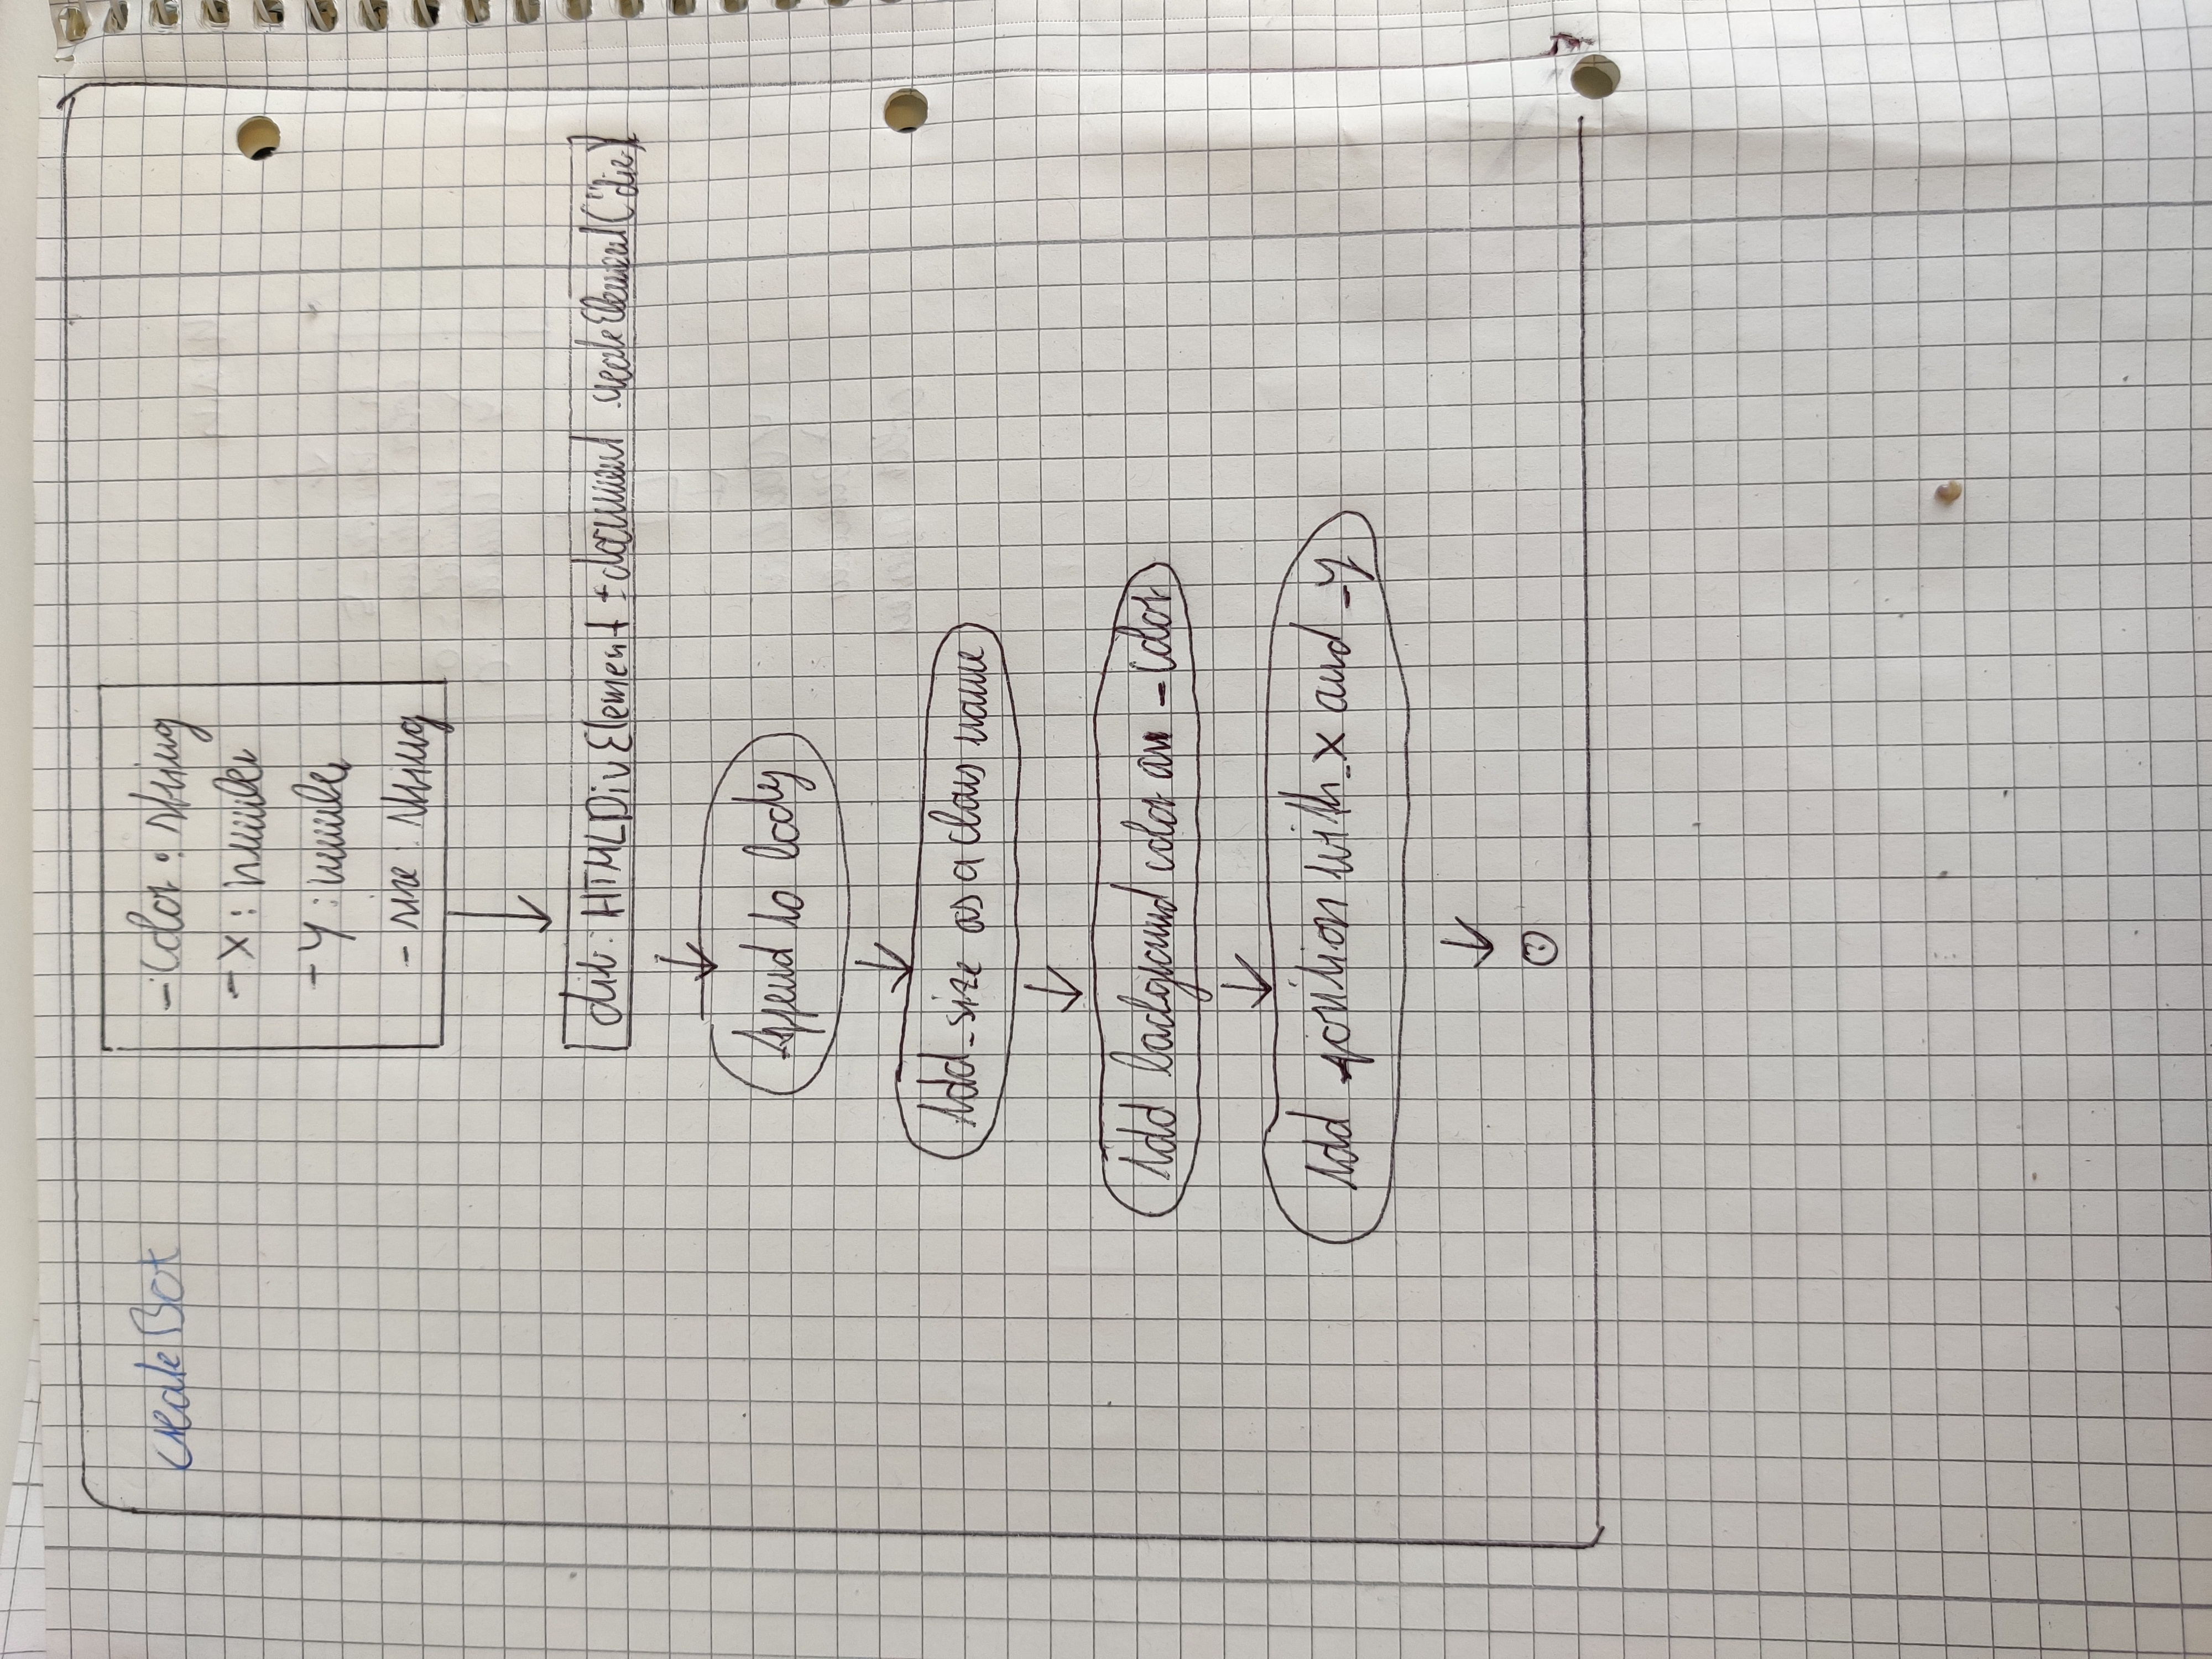 createBot
_color : string
_x : number
_y : number
_size : string
div : HTMLDivElement = document.createElement("div")
Append to body
Add _size as a class name
Add background color as _color
Add position with _x and _y